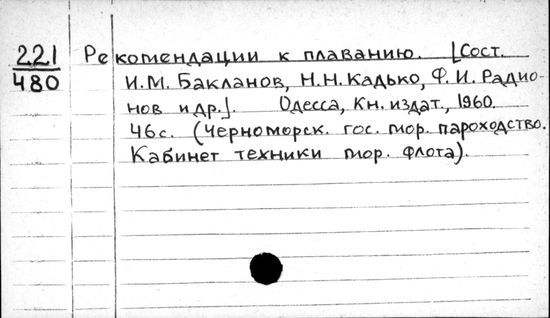 221 Рекомендации к плаванию. [Сост.
480 И.М. Бакланов, Н.Н. Кадько, Ф.И. Радио-
нов и др.]. Одесса, Кн. издат., 1960.
46 с. (Черноморск. гос. мор. пароходство.
Кабинет техники мор. флота).